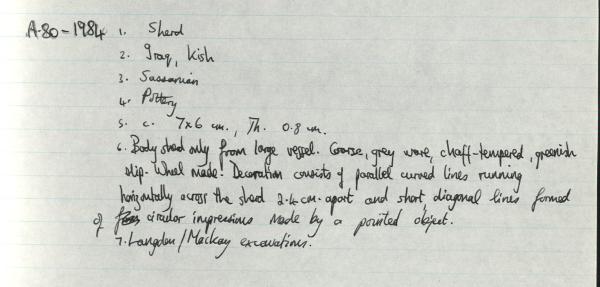 A.80-1984 1. Sherd
2. Iraq, Kish
3. Sassanian
4. Pottery
5. c. 7x6 cm., Th. 0.8 cm.
6. Body sherd only from large vessel. Coarse, grey ware, chaff-tempered, greenish
slip. Wheel made. Decoration consists of parallel curved lines running
horizontally across the sherd 2.4 cm. apart and short, diagonal lines formed
of circular impressions made by a pointed object.
7. Langdon/Mackay excavations.